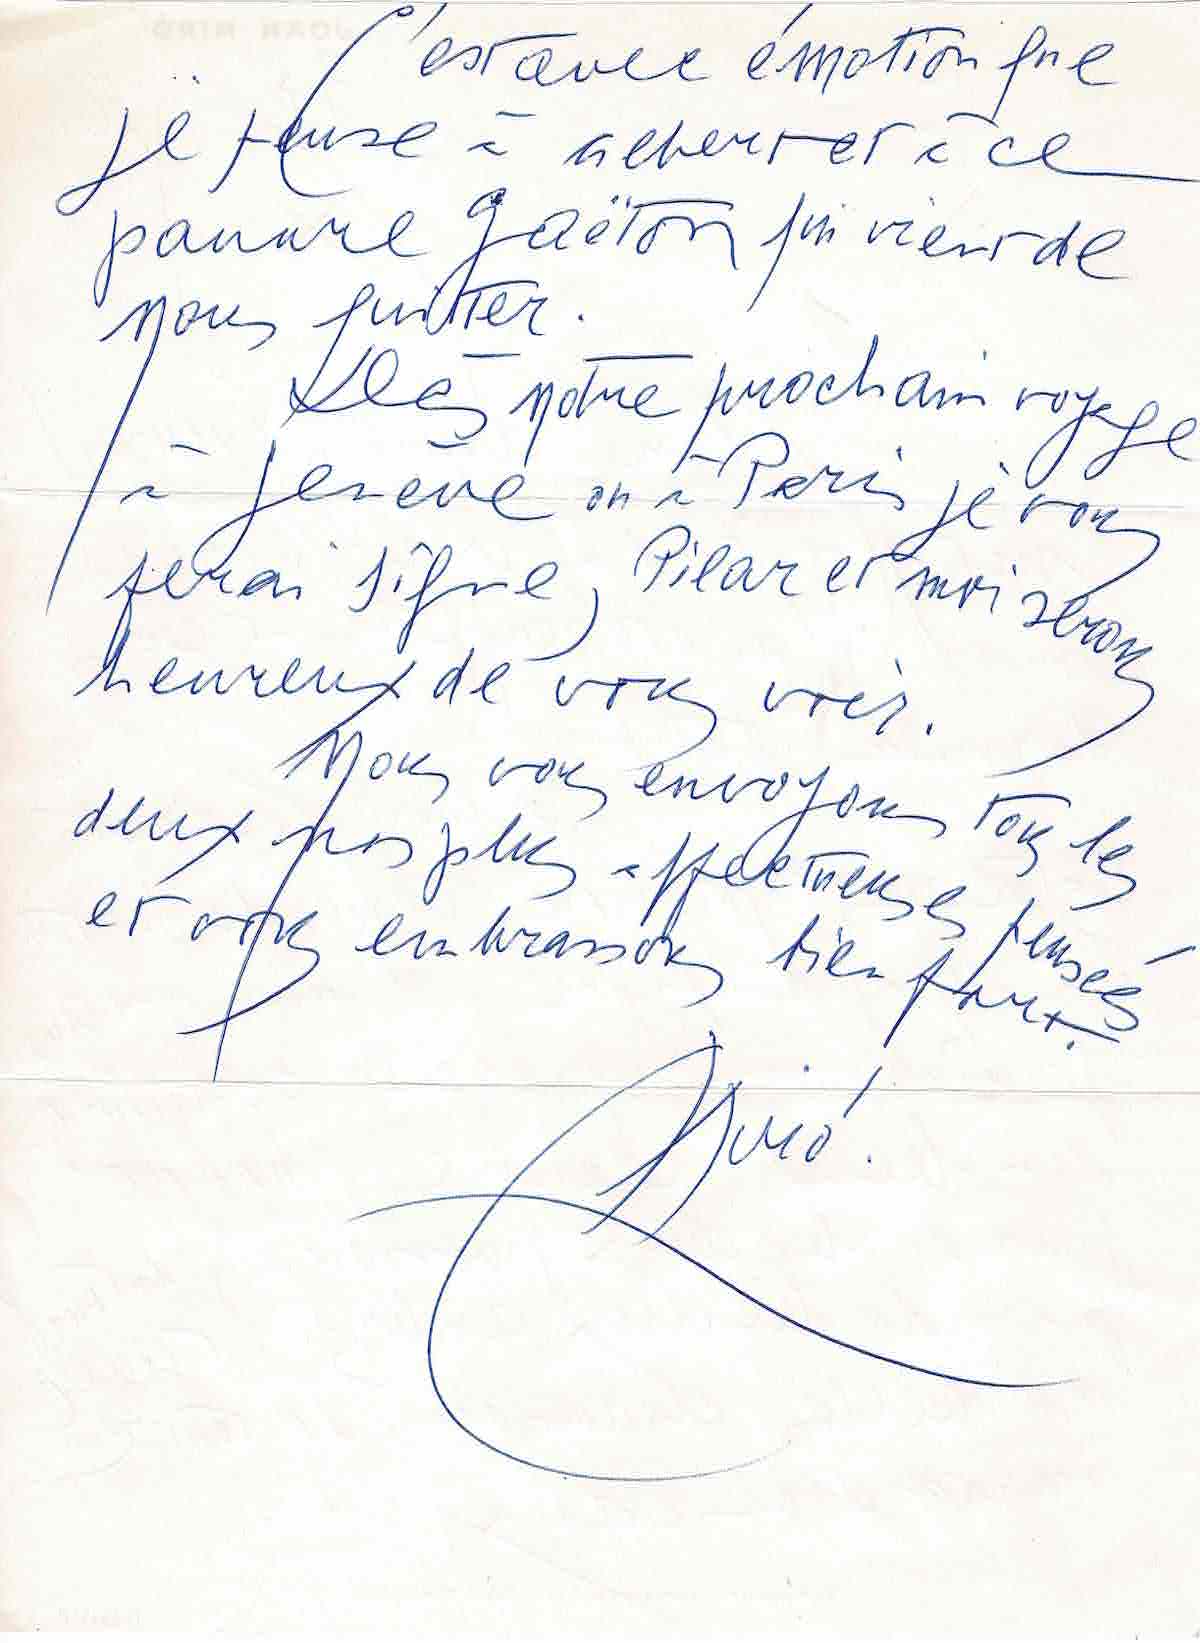 C'est avec émotion que
je pense à Aeberver et à ce
pauvre Gaëton qui vient de
nous quitter.
Dès notre prochain voyage
à Genève ou à Paris je vous
ferai signe, Pilar et moi serons
heureux de vous voir.
Nous vous envoyons tous les
deux nos plus affectueuses pensées
et vous embrassons bien fort.
Miró!